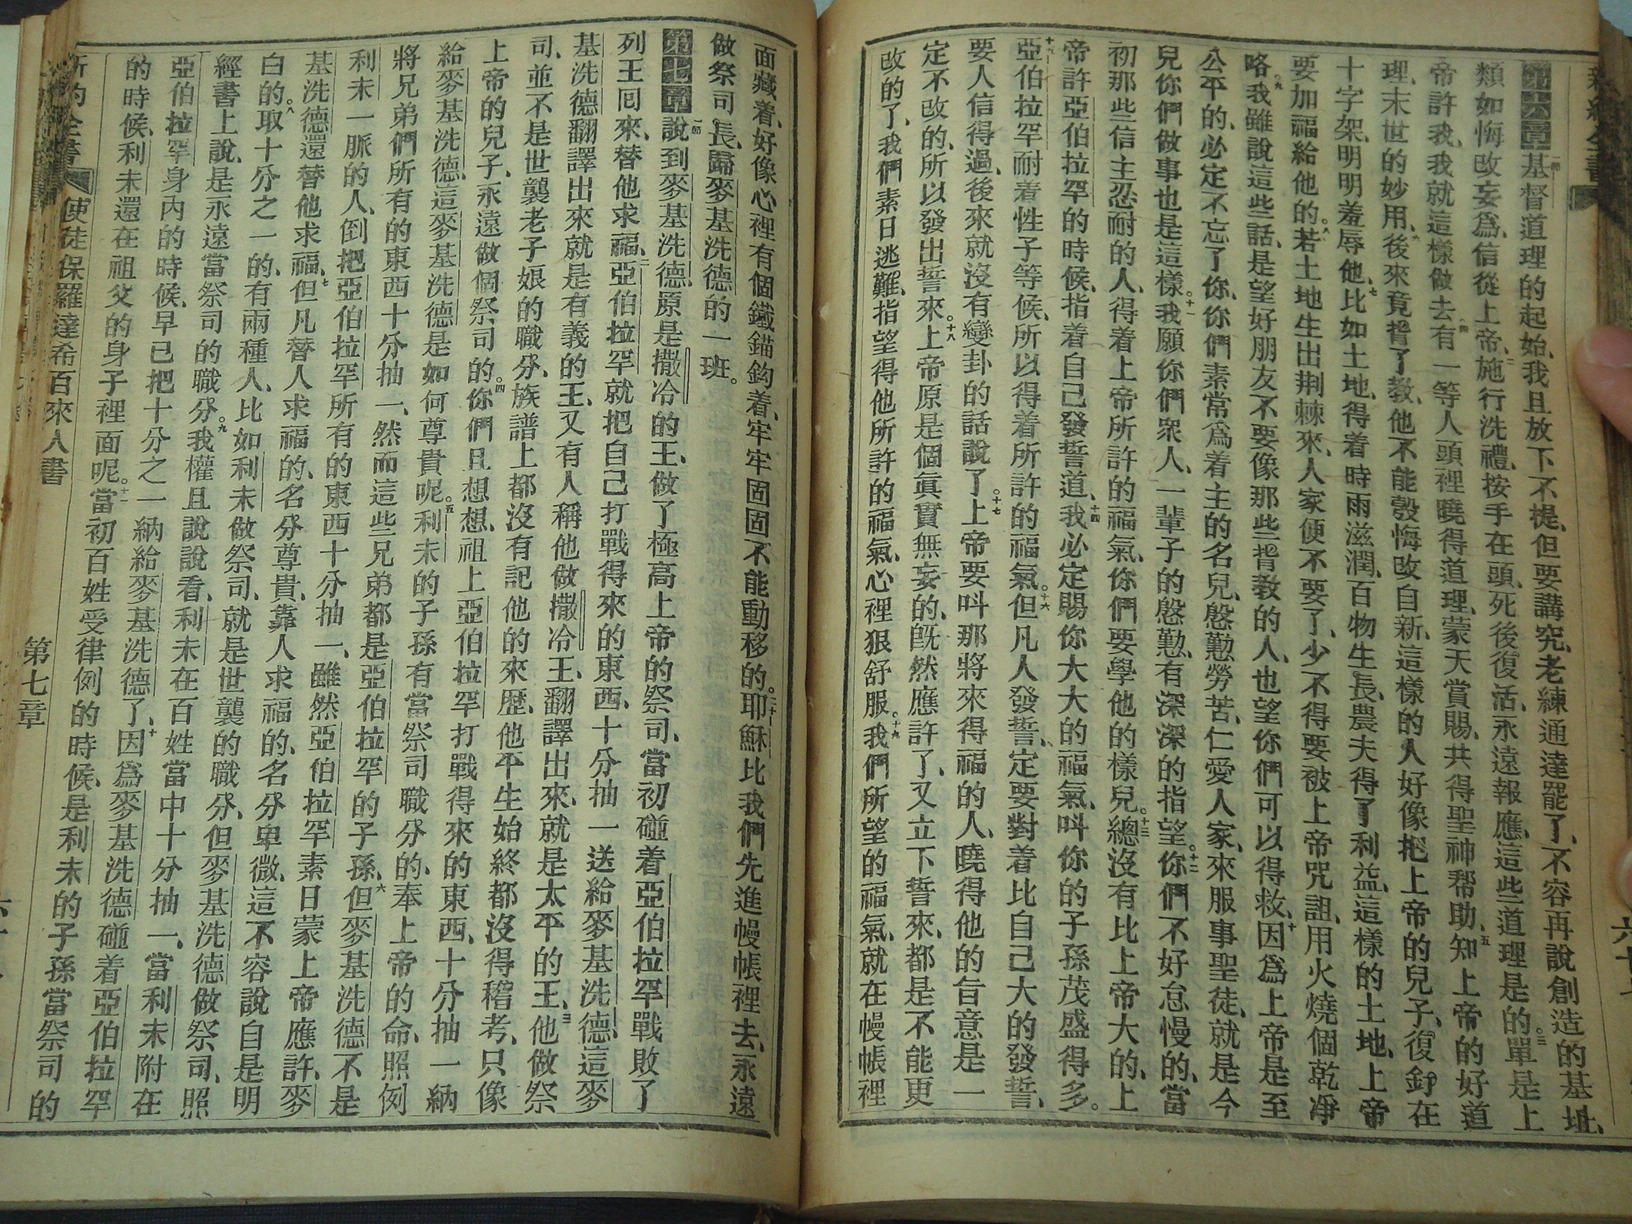 第六章基督道理的起始、我且放下不提、但要講究老練通達罷了、不容再說創造的基址、
類如悔改妄爲、信從上帝、施行洗禮、按手在頭、死後復活、永遠報應、這些道理是的、三單是上
帝許我、我就這樣做去、四有一等人、頭裡曉得道理、蒙天賞賜、共得聖神帮助、五知上帝的好道
理、末世的妙用、六後來竟背了教、他不能彀悔改自新、這樣的人好像把上帝的兒子、復釘在
十字架、明明羞辱他、七比如土地、得着時雨滋潤、百物生長、農夫得了利益、這樣的土地、上帝
要加福給他的、八若土地生出荆棘來、人家便不要了、少不得要被上帝咒詛、用火燒個乾凈
略、九我雖說這些話、是望好朋友不要像那些背教的人、也望你們可以得救、十因爲上帝是至
公平的、必定不忘了你、你們素常爲着主的名兒、慇懃勞苦、仁愛人家、來服事聖徒、就是今
兒你們做事也是這樣、十一我願你們衆人、一輩子的慇懃、有深深的指望、十二你們不好怠慢的、當
初那些信主忍耐的人、得着上帝所許的福氣、你們要學他的樣兒、十三總沒有比上帝大的、上
帝許亞伯拉罕的時候、指着自己發誓道、十四我必定賜你大大的福氣、叫你的子孫茂盛得多。
十五亞伯拉罕耐着性子等候、所以得着所許的福氣、十六但凡人發誓、定要對着比自己大的發誓、
要人信得過、後來就沒有變卦的話說了、十七上帝要叫那將來得福的人、曉得他的旨意是一
定不改的、所以發出誓來、十八上帝原是個眞實無妄的、旣然應許了、又立下誓來、都是不能更
改的了、我們素日逃難、指望得他所許的福氣、心裡狠舒服、十九我們所望的福氣、就在幔帳裡
面藏着、好像心裡有個鐵錨鈎着、牢牢固固不能動移的、二十耶穌比我們先進幔帳裡去、永遠
做祭司長、歸麥基洗德的一班。
第七章一節說到麥基洗德、原是撒冷的王、做了極高上帝的祭司、當初碰着亞伯拉罕戰敗了
列王囘來、替他求福、二亞伯拉罕就把自己打戰得來的東西、十分抽一送給麥基洗德、這麥
基洗德翻譯出來、就是有義的王、又有人稱他做撒冷王、翻譯出來、就是太平的王、三他做祭
司、並不是世襲老子娘的職分、族譜上都沒有記他的來歷、他平生始終都沒得稽考、只像
上帝的兒子、永遠做個祭司的、四你們且想想、祖上亞伯拉罕打戰得來的東西、十分抽一納
給麥基洗德、這麥基洗德是如何尊貴呢、五利未的子孫有當祭司職分的、奉上帝的命、照例
將兄弟們所有的東西十分抽一、然而這些兄弟都是亞伯拉罕的子孫、六但麥基洗德不是
利未一脈的人、倒把亞伯拉罕所有的東西十分抽一、雖然亞伯拉罕素日蒙上帝應許、麥
基洗德還替他求福、七但凡替人求福的、名分尊貴、靠人求福的、名分卑微、這不容說自是明
白的、八取十分之一的、有兩種人、比如利未做祭司、就是世襲的職分、但麥基洗德做祭司、照
經書上說、是永遠當祭司的職分、九我權且說說看、利未在百姓當中十分抽一、當利未附在
亞伯拉罕身內的時候、早已把十分之一納給麥基洗德了、十因爲麥基洗德碰着亞伯拉罕
的時候、利未還在祖父的身子裡面呢、十一當初百姓受律例的時候、是利未的子孫當祭司的
新約全書 使徒保羅達希百來人書 第七章